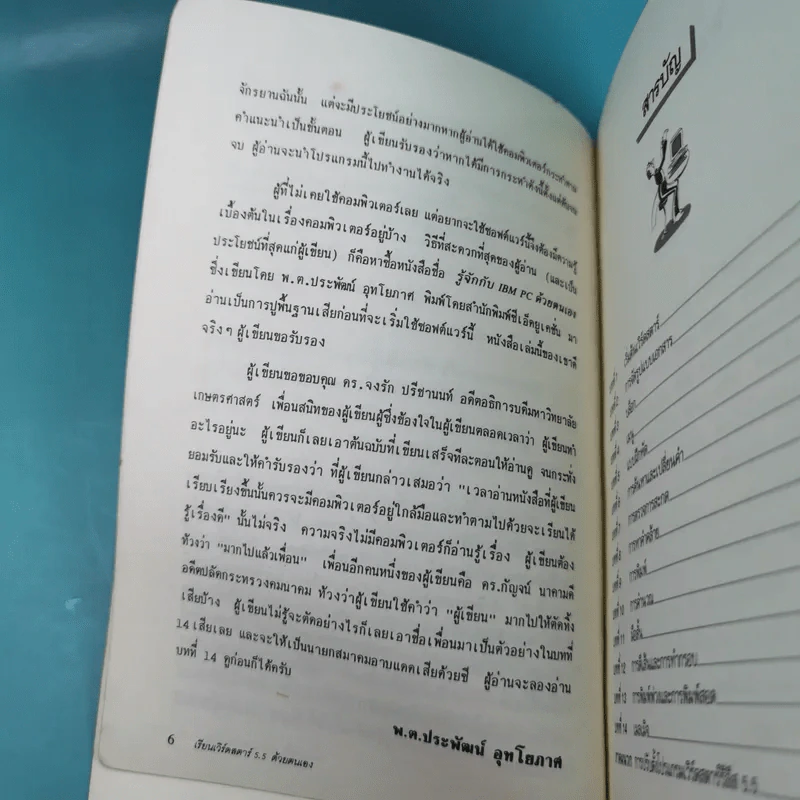 จักรยานฉันนั้น แต่จะมีประโยชน์อย่างมากหากผู้อ่านได้ใช้คอมพิวเตอร์กระทำตาม
คำแนะนำเป็นขั้นตอน ผู้เขียนรับรองว่าหากได้มีการกระทำดังนี้ตั้งแต่ต้นจน
จบ ผู้อ่านจะนำโปรแกรมนี้ไปทำงานได้จริง
ผู้ที่ไม่เคยใช้คอมพิวเตอร์เลย แต่อยากจะใช้ซอฟต์แวร์นี้จึงต้องมีความรู้
เบื้องต้นในเรื่องคอมพิวเตอร์อยู่บ้าง วิธีที่สะดวกที่สุดของผู้อ่าน (และเป็น
ประโยชน์ที่สุดแก่ผู้เขียน) ก็คือหาซื้อหนังสือชื่อ รู้จักกับ IBM PC ด้วยตนเอง
ซึ่งเขียนโดย พ.ต.ประพัฒน์ อุทโยภาศ พิมพ์โดยสำนักพิมพ์ซีเอ็ดยูเคชั่น มา
อ่านเป็นการปูพื้นฐานเสียก่อนที่จะเริ่มใช้ซอฟต์แวร์นี้ หนังสือเล่มนี้ของเขาดี
จริงๆ ผู้เขียนขอรับรอง
ผู้เขียนขอขอบคุณ ดร.จงรัก ปรีชานนท์ อดีตอธิการบดีมหาวิทยาลัย
เกษตรศาสตร์ เพื่อนสนิทของผู้เขียนผู้ซึ่งข้องใจในผู้เขียนตลอดเวลาว่า ผู้เขียนทำ
อะไรอยู่นะ ผู้เขียนก็เลยเอาต้นฉบับที่เขียนเสร็จทีละตอนให้อ่านดู จนกระทั่ง
ยอมรับและให้คำรับรองว่า ที่ผู้เขียนกล่าวเสมอว่า "เวลาอ่านหนังสือที่ผู้เขียน
เรียบเรียงขึ้นนั้นควรจะมีคอมพิวเตอร์อยู่ใกล้มือและทำตามไปด้วยจะเรียนได้
รู้เรื่องดี" นั้นไม่จริง ความจริงไม่มีคอมพิวเตอร์ก็อ่านรู้เรื่อง ผู้เขียนต้อง
ท้วงว่า "มากไปแล้วเพื่อน" เพื่อนอีกคนหนึ่งของผู้เขียนคือ ดร.กัญจน์ นาคามดี
อดีตปลัดกระทรวงคมนาคม ท้วงว่าผู้เขียนใช้คำว่า "ผู้เขียน" มากไปให้ตัดทิ้ง
เสียบ้าง ผู้เขียนไม่รู้จะตัดอย่างไรก็เลยเอาชื่อเพื่อนมาเป็นตัวอย่างในบทที่
14 เสียเลย และจะให้เป็นนายกสมาคมอาบแดดเสียด้วยซี ผู้อ่านจะลองอ่าน
บทที่ 14 ดูก่อนก็ได้ครับ
พ.ต.ประพัฒน์ อุทโยภาศ
6 เรียนเวิร์ดสตาร์ 5.5 ด้วยตนเอง
สารบัญ
บทที่ 2 การจัดรูปแบบเอกสาร
บทที่ 3 บล็อก
บทที่ 4 เมนู
บทที่ 6 การค้นหาและเปลี่ยนคำ
บทที่ 7 การตรวจการสะกด
บทที่ 8 การหาคำคล้าย
บทที่ 9 การพิมพ์
บทที่ 10 การคำนวณ
บทที่ 11
บทที่ 12 การตีเส้นและการทำกรอบ
บทที่ 13
บทที่ 14